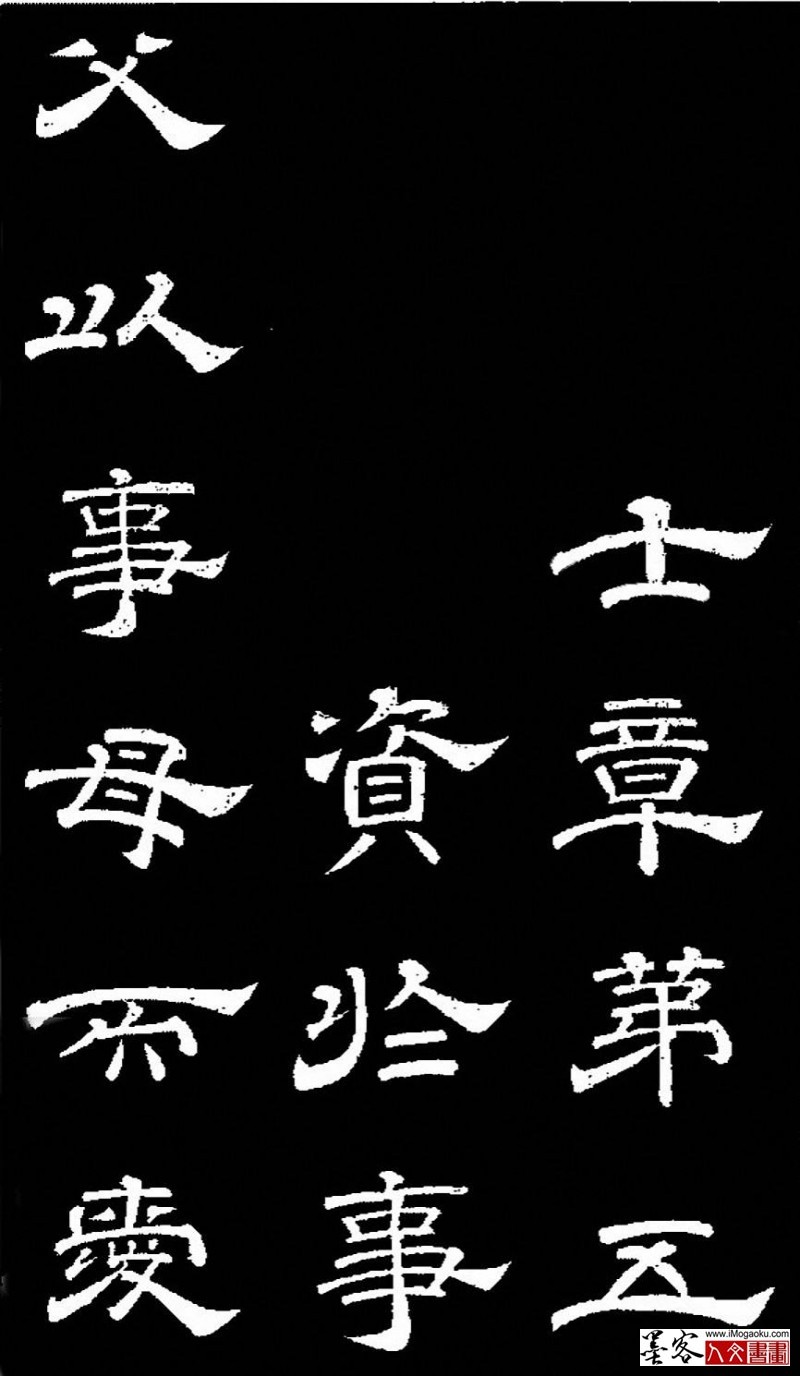 士章第五
資於事
父以事母而愛
墨客 www.iMogaoku.com
人文書畫